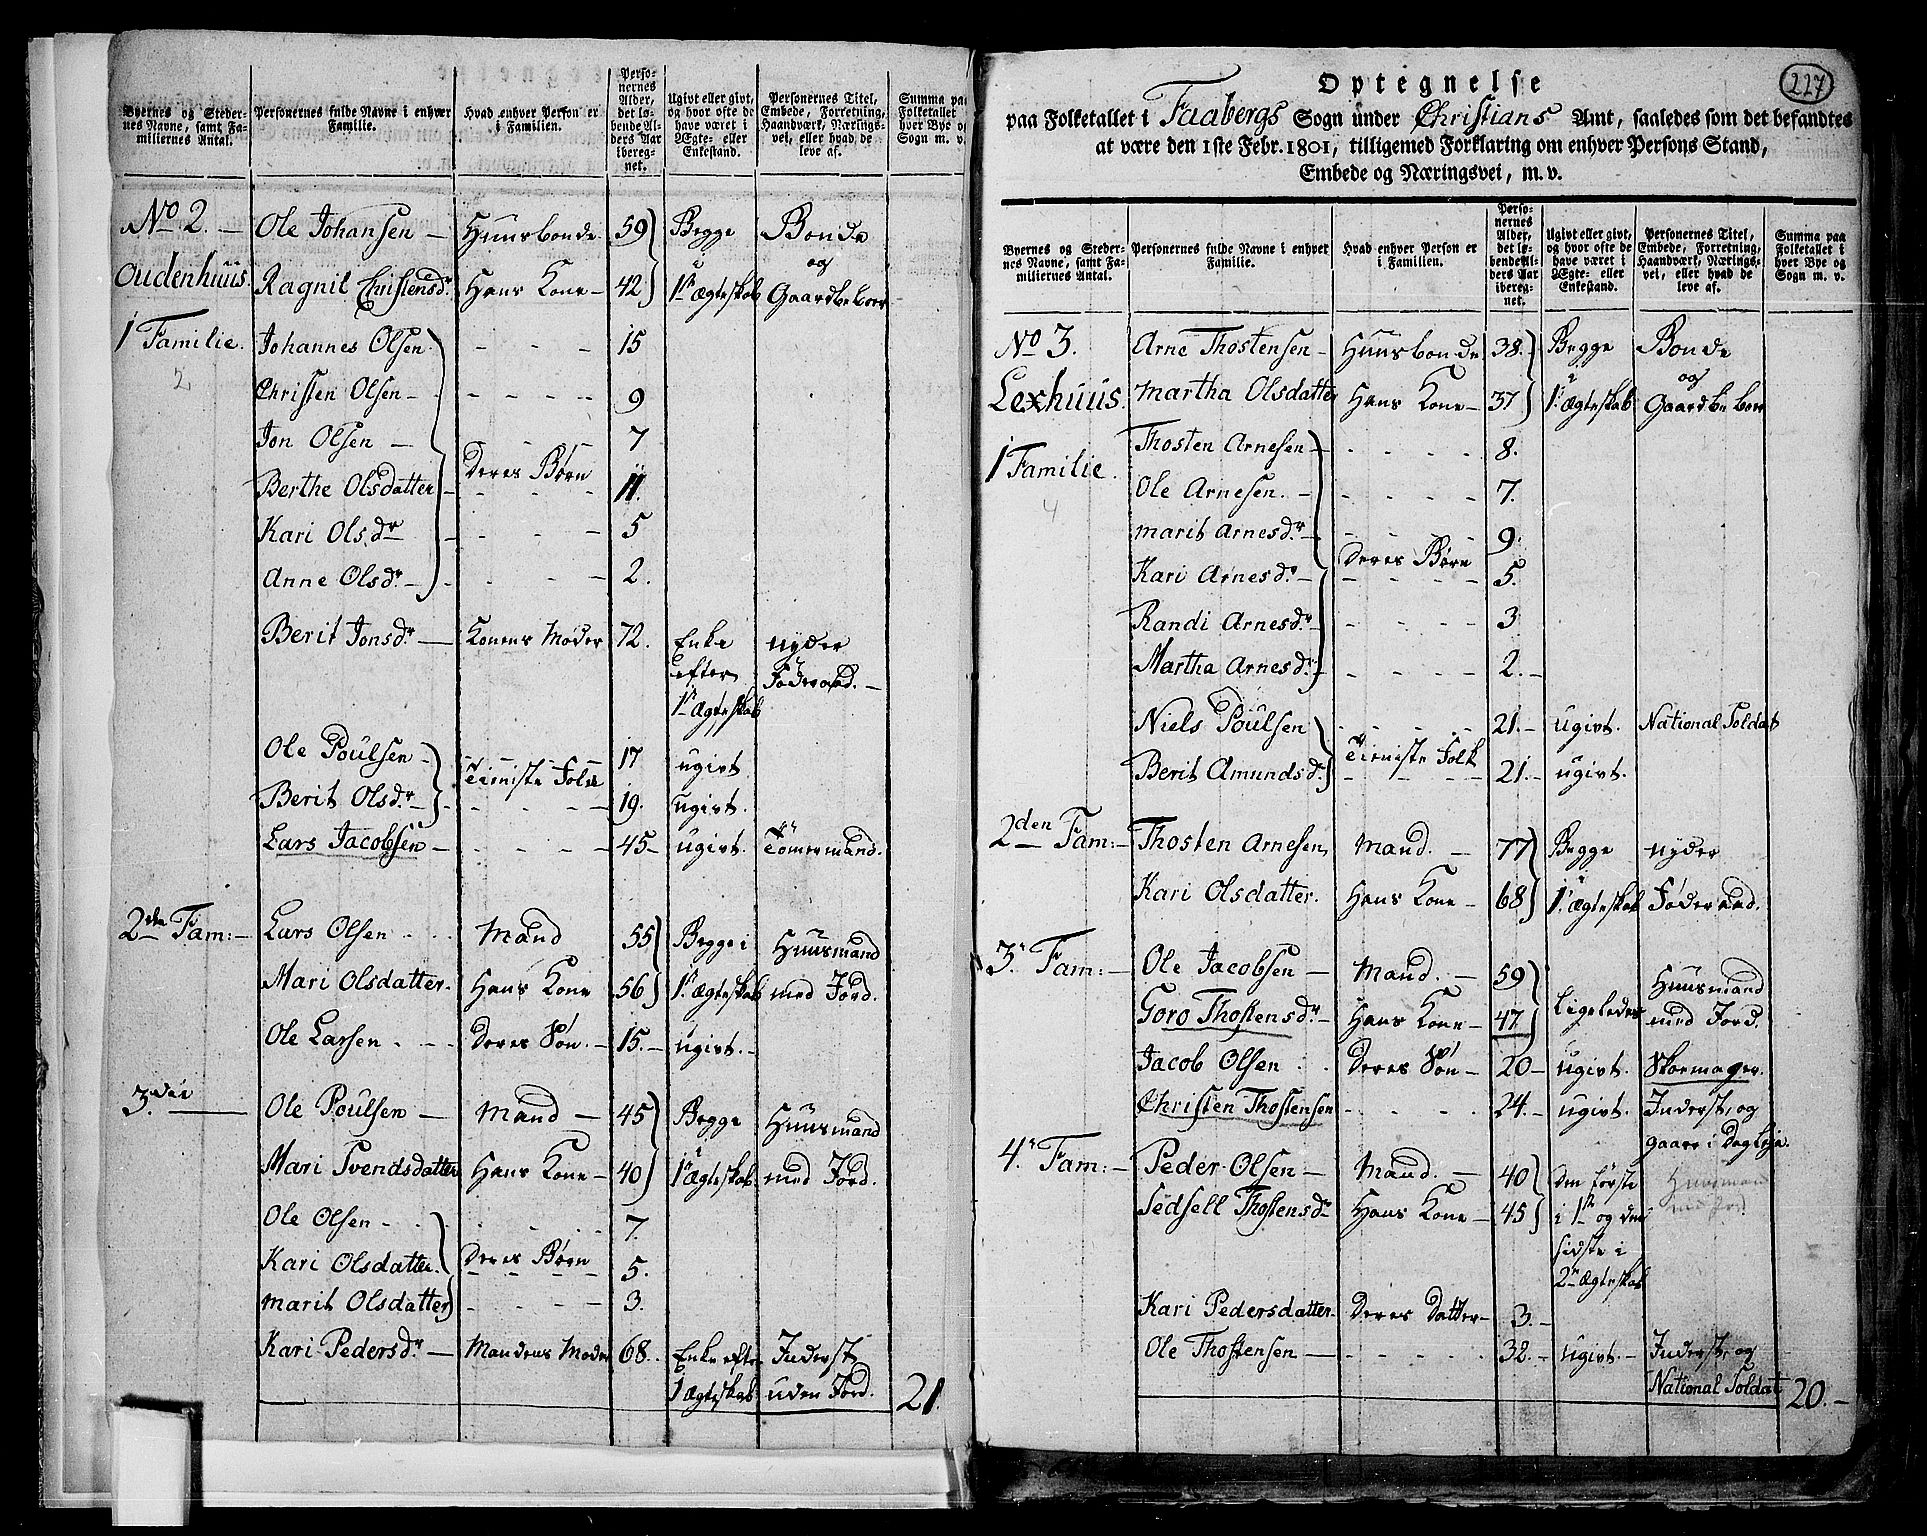 Byernes og Steder-
nes Navne, samt Fa-
miliernes Antal.
Personernes fulde Navne i enhver
Familie.
Hvad enhver Person er
i Familien.
Perso-
nernes
Alder,
det lø-
bende Al-
ders Aar
iberegnet.
Ugivt eller givt,
og hvor ofte de
have været i
Ægte- eller
Enkestand.
Personernes Titel,
Embede, Forretning,
Haandværk, Nærings-
vei, eller hvad de
leve af.
Summa paa
Folketallet
hver By og
Sogn m. v.
No 2. — Ole Johansen — Huusbonde 59 Begge Bonde
Oudenhuus. Ragnil Christensdr. Hans Kone — 42 i 1te Ægteskab og Gaardbeboer
1 Familie. Johannes Olsen - - - 15
2 Christen Olsen - - - - - 9
Jon Olsen — - - - 7
Deres Børn
Berthe Olsdatter - - - - 11.
Kari Olsdr - - - - 5
Anne Olsdr. - - - - 2.
Berit Jonsdr. — Konens Moder 72. Enke nyder
efter Føderaad. —
1te Ægteskab
Ole Poulsen - - - - 17 ugivt
Tieniste Folk
Berit Olsdr. - - - - 19. ugivt.
Lars Jacobsen - - - - - 45 - ugivt. Tömermand.
2den Fam: - Lars Olsen - - Mand 55 Begge i Huusmand
Mari Olsdatter. Hans Kone 56 1te Ægteskab med Jord.
Ole Larsen - - - Deres Søn. - 15. - ugivt. -
3die — Ole Poulsen — Mand — 45 Begge Huusmand
Mari Svendsdatter Hans Kone - 40 i 1te Ægteskab. med Jord.
Ole Olsen - - - - - - 7.
Kari Olsdatter. Deres Børn 5.
Marit Olsdatter - - - - 3.
Kari Pedersdr. — Mandens Moder 68. Enke efter Inderst
1 Ægteskab uden Jord. 21.
227
Optegnelse
paa Folketallet i Faabergs Sogn under Christians Amt, saaledes som det befandtes
at være den 1ste Febr. 1801, tilligemed Forklaring om enhver Persons Stand,
Embede og Næringsvei, m. v.
Byernes og Steder-
nes Navne, samt Fa-
miliernes Antal.
Personernes fulde Navne i enhver
Familie.
Hvad enhver Person er
i Familien.
Perso-
nernes
Alder,
det lø-
bende Al-
ders Aar
iberegnet.
Ugivt eller givt,
og hvor ofte de
have været i
Ægte- eller
Enkestand.
Personernes Titel,
Embede, Forretning,
Haandværk, Nærings-
vei, eller hvad de
leve af.
Summa paa
Folketallet i
hver Bye og
Sogn m. v.
No 3. Arne Thostensen - Huusbonde 38. Begge Bonde
Lexhuus. Martha Olsdatter Hans Kone - 37 i 1. Ægteskab og Gaardbeboer
1 Familie. Thosten Arnesen - - - - - 8.
4 Ole Arnesen. - - - - - 7.
Marit Arnesdr. - - - - 9.
Deres Børn
Kari Arnesdr. - - - - 5.
Randi Arnesdr. - - - - 3
Martha Arnesdr. - - - - 2. -
Niels Poulsen - - - - 21. - ugivt. National Soldat
Tieniste Folk
Berit Amundsdr. - - - - 21. - ugivt.
2den Fam: - Thosten Arnesen, Mand. - 77 Begge nyder
Kari Olsdatter. Hans Kone - 68 i 1. Ægteskab Föderaad.
3. Fam: - Ole Jacobsen — Mand. - 59 Huusmand
Goro Thostensdr. - Hans Kone - 47. Ligeledes med Jord.
Jacob Olsen - - Deres Søn - 20 - ugivt. Skoemager.
Christen Thostensen - - - - 24. - ugivt. Inderst, og
gaaer i Dagleje.
4. Fam: - Peder Olsen — Mand. - 40 Den første Huusmand
Sedsell Thostensdr Hans Kone - 45 i 1te og den med Jord.
sidste i
2. Ægteskab
Kari Pedersdatter - Deres Datter - 3. -
Ole Thostensen — - - - - 32. - ugivt. - Inderst, og
National Soldat 20. -